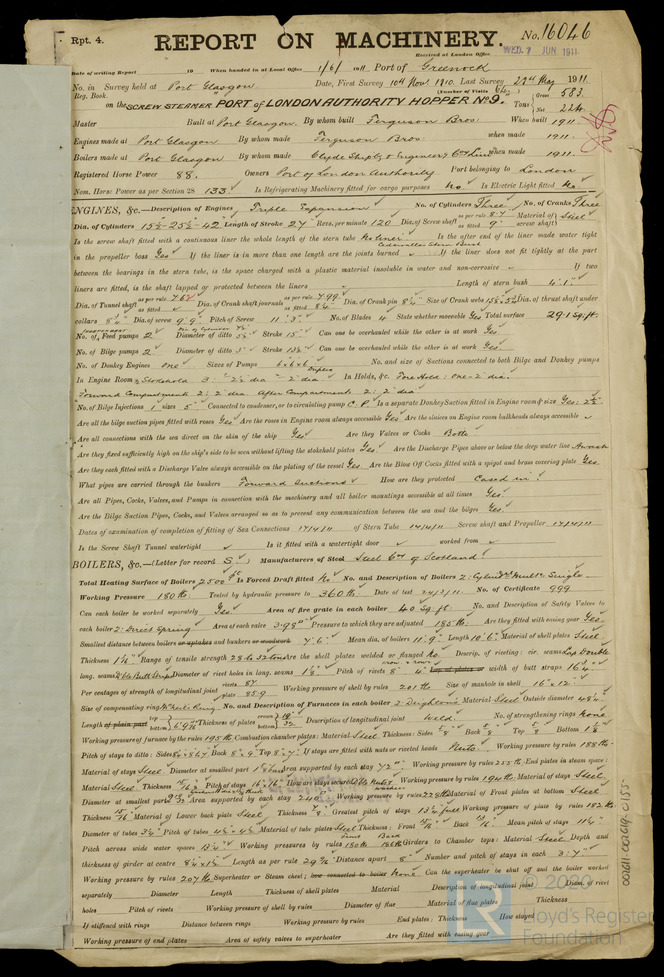 Rpt. 4.
No. 16046
REPORT ON MACHINERY.
Received at London Office WED. 7 JUN 1911
Date of writing Report 19 When handed in at Local Office 1/6/ 1911 Port of Greenock
No. in Survey held at Port Glasgow Date, First Survey 10th Nov. 1910 Last Survey 29th May 1911
Reg. Book. (Number of Visits
on the SCREW STEAMER PORT of LONDON AUTHORITY HOPPER No 9. Tons Gross 583 Net 224
Master Built at Port Glasgow By whom built Ferguson Bros. When built 1911
Engines made at Port Glasgow By whom made Ferguson Bros. when made 1911
Boilers made at Port Glasgow By whom made Clyde Shipbg & Engineerg Coy Limd when made 1911
Registered Horse Power 88. Owners Port of London Authority Port belonging to London
Nom. Horse Power as per Section 28 133 Is Refrigerating Machinery fitted for cargo purposes No. Is Electric Light fitted No
ENGINES, &c.—Description of Engines Triple Expansion No. of Cylinders Three No. of Cranks Three
Dia. of Cylinders 15½-25½-42 Length of Stroke 27" Revs. per minute 120 Dia. of Screw shaft as per rule 8.7 as fitted 9" Material of screw shaft Steel
Is the screw shaft fitted with a continuous liner the whole length of the stern tube No liner Is the after end of the liner made water tight
in the propeller boss Yes If the liner is in more than one length are the joints burned If the liner does not fit tightly at the part
between the bearings in the stern tube, is the space charged with a plastic material insoluble in water and non-corrosive If two
liners are fitted, is the shaft lapped or protected between the liners Length of stern bush 4'.1"
Dia. of Tunnel shaft as per rule 7.64 as fitted Dia. of Crank shaft journals as per rule 7.99 as fitted 8¼" Dia. of Crank pin 8¼" Size of Crank webs Dia. of thrust shaft under
collars 8¼" Dia. of screw 9'.9" Pitch of Screw 11'.3" No. of Blades 4 State whether moveable Yes Total surface 29.1 Sq. ft.
No. of Feed pumps 2 Diameter of ditto Stroke 15" Can one be overhauled while the other is at work Yes
No. of Bilge pumps 2 Diameter of ditto Stroke 13½" Can one be overhauled while the other is at work Yes
No. of Donkey Engines One Sizes of Pumps 6×6×6 Duplex No. and size of Suctions connected to both Bilge and Donkey pumps
In Engine Room & Stokehold 3: 2½ dia 2" dia In Holds, &c. Fore Hold: one-2" dia.
Forward Compartment 2: 2" dia After Compartments 2: 2" dia
No. of Bilge Injections 1 sizes 5" Connected to condenser, or to circulating pump C.P. Is a separate Donkey Suction fitted in Engine room & size Yes: 2½"
Are all the bilge suction pipes fitted with roses Yes Are the roses in Engine room always accessible Yes Are the sluices on Engine room bulkheads always accessible
Are all connections with the sea direct on the skin of the ship Yes Are they Valves or Cocks Both
Are they fixed sufficiently high on the ship's side to be seen without lifting the stokehold plates Yes Are the Discharge Pipes above or below the deep water line Above
Are they each fitted with a Discharge Valve always accessible on the plating of the vessel Yes Are the Blow Off Cocks fitted with a spigot and brass covering plate Yes
What pipes are carried through the bunkers Forward Suctions How are they protected Cased in
Are all Pipes, Cocks, Valves, and Pumps in connection with the machinery and all boiler mountings accessible at all times Yes
Are the Bilge Suction Pipes, Cocks, and Valves arranged so as to prevent any communication between the sea and the bilges Yes
Dates of examination of completion of fitting of Sea Connections 17/4/11 of Stern Tube 14/4/11 Screw shaft and Propeller 17/4/11
Is the Screw Shaft Tunnel watertight Is it fitted with a watertight door worked from
BOILERS, &c.—(Letter for record S) Manufacturers of Steel Steel Coy of Scotland
Total Heating Surface of Boilers 2500 Is Forced Draft fitted No No. and Description of Boilers 2: Cylindl Multr Single
Working Pressure 180 lb Tested by hydraulic pressure to 360 lb Date of test 24/3/11 No. of Certificate 999
Can each boiler be worked separately Yes Area of fire grate in each boiler 40 Sq. ft. No. and Description of Safety Valves to
each boiler 2: Direct Spring Area of each valve 3.98" Pressure to which they are adjusted 185 lb Are they fitted with easing gear Yes
Smallest distance between boilers or uptakes and bunkers or woodwork 7'.6" Mean dia. of boilers 11'.9" Length 10'.6" Material of shell plates Steel
Thickness Range of tensile strength 28 to 32 tons Are the shell plates welded or flanged No Descrip. of riveting: cir. seams Lap Double
long. seams Dble Butt Strap Diameter of rivet holes in long. seams 1⅛" Pitch of rivets 8" Lap of plates or width of butt straps 16¾"
Per centages of strength of longitudinal joint rivets 87 plate 85.9 Working pressure of shell by rules 201 lb Size of manhole in shell 16"×12"
Size of compensating ring McNeil's Ring No. and Description of Furnaces in each boiler 2 Deightons Material Steel Outside diameter 48¼"
Length of plain part top bottom Thickness of plates crown bottom Description of longitudinal joint Weld. No. of strengthening rings None
Working pressure of furnace by the rules 195 lb Combustion chamber plates: Material Steel Thickness: Sides Back Top Bottom
Pitch of stays to ditto: Sides Back Top If stays are fitted with nuts or riveted heads Nuts Working pressure by rules 188 lb
Material of stays Steel Diameter at smallest part Area supported by each stay 72" Working pressure by rules 205 lb End plates in steam space:
Material Steel Thickness Pitch of stays 16×16" How are stays secured Working pressure by rules 194 lb Material of stays Steel
Diameter at smallest part Area supported by each stay 240" Working pressure by rules Material of Front plates at bottom Steel
Thickness Material of Lower back plate Steel Thickness Greatest pitch of stays Working pressure of plate by rules 182 lb
Diameter of tubes 3¼" Pitch of tubes Material of tube plates Steel Thickness: Front Back Mean pitch of stays 11¼"
Pitch across wide water spaces 13¼" Working pressures by rules Girders to Chamber tops: Material Steel Depth and
thickness of girder at centre Length as per rule 29 Distance apart 8" Number and pitch of stays in each 3: 7"
Working pressure by rules 207 lb Superheater or Steam chest; how connected to boiler None Can the superheater be shut off and the boiler worked
separately Diameter Length Thickness of shell plates Material Description of longitudinal joint Diam. of rivet
holes Pitch of rivets Working pressure of shell by rules Diameter of flue Material of flue plates Thickness
If stiffened with rings Distance between rings Working pressure by rules End plates: Thickness How stayed
Working pressure of end plates Area of safety valves to superheater Are they fitted with easing gear
002611-002619-0155
© 2020
Lloyd's Register
Foundation